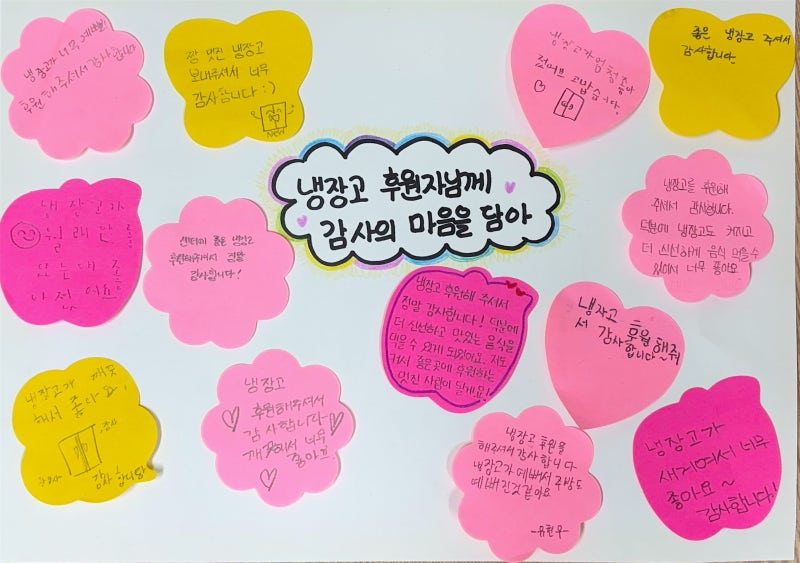 냉장고 후원자님께
감사의 마음을 담아
냉장고가 너무 예뻐요!
후원해주셔서 감사합니다
짱 멋진 냉장고
보내주셔서 너무
감사합니다 :)
NEW
냉장고가 엄청 좋아
고맙습니다!
좋은 냉장고 주셔서
감사합니다.
냉장고가
원래
센터에 좋은 냉장고
후원해주셔서 정말
감사합니다!
냉장고를 후원해
주셔서 감사합니다.
덕분에 냉장고도 커지고
더 신선하게 음식 먹을수
있어서 너무 좋아요
냉장고 후원해 주셔서
정말 감사합니다! 덕분에
더 신선하고 맛있는 음식을
먹을 수 있게 되었어요. 저도
커서 좋은곳에 후원하는
멋진 사람이 될게요!
냉장고 후원해줘
서 감사
합니다~
냉장고가 깨끗
해서 좋아요
감사
감사합니다
냉장고
후원해주셔서
감사합니다~
깨끗해서 너무
좋아요
냉장고 후원을
해주셔서 감사합니다
냉장고가 예뻐서 주방도
예뻐진것 같아요
냉장고가
새거여서 너무
좋아요~
감사합니다!